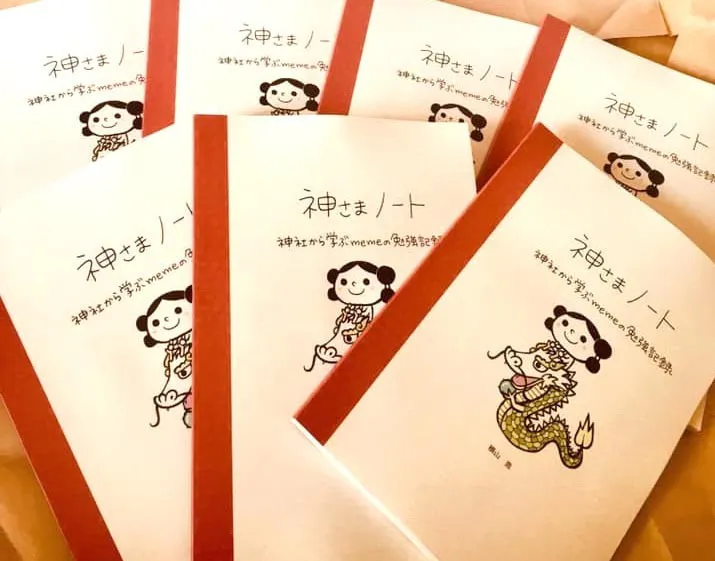 神さまノート
神社から学ぶmemeの
神さまノー
神社から学ぶmemeの勉
神さまノート
神社から学ぶmemeの勉強
神さまノート
神社から学ぶmemeの勉強記録
神さまノート
神社から学ぶmemeの勉
神さまノート
神社から学ぶmemeの勉強記録
神さまノート
神社から学ぶmemeの勉強記録
横山